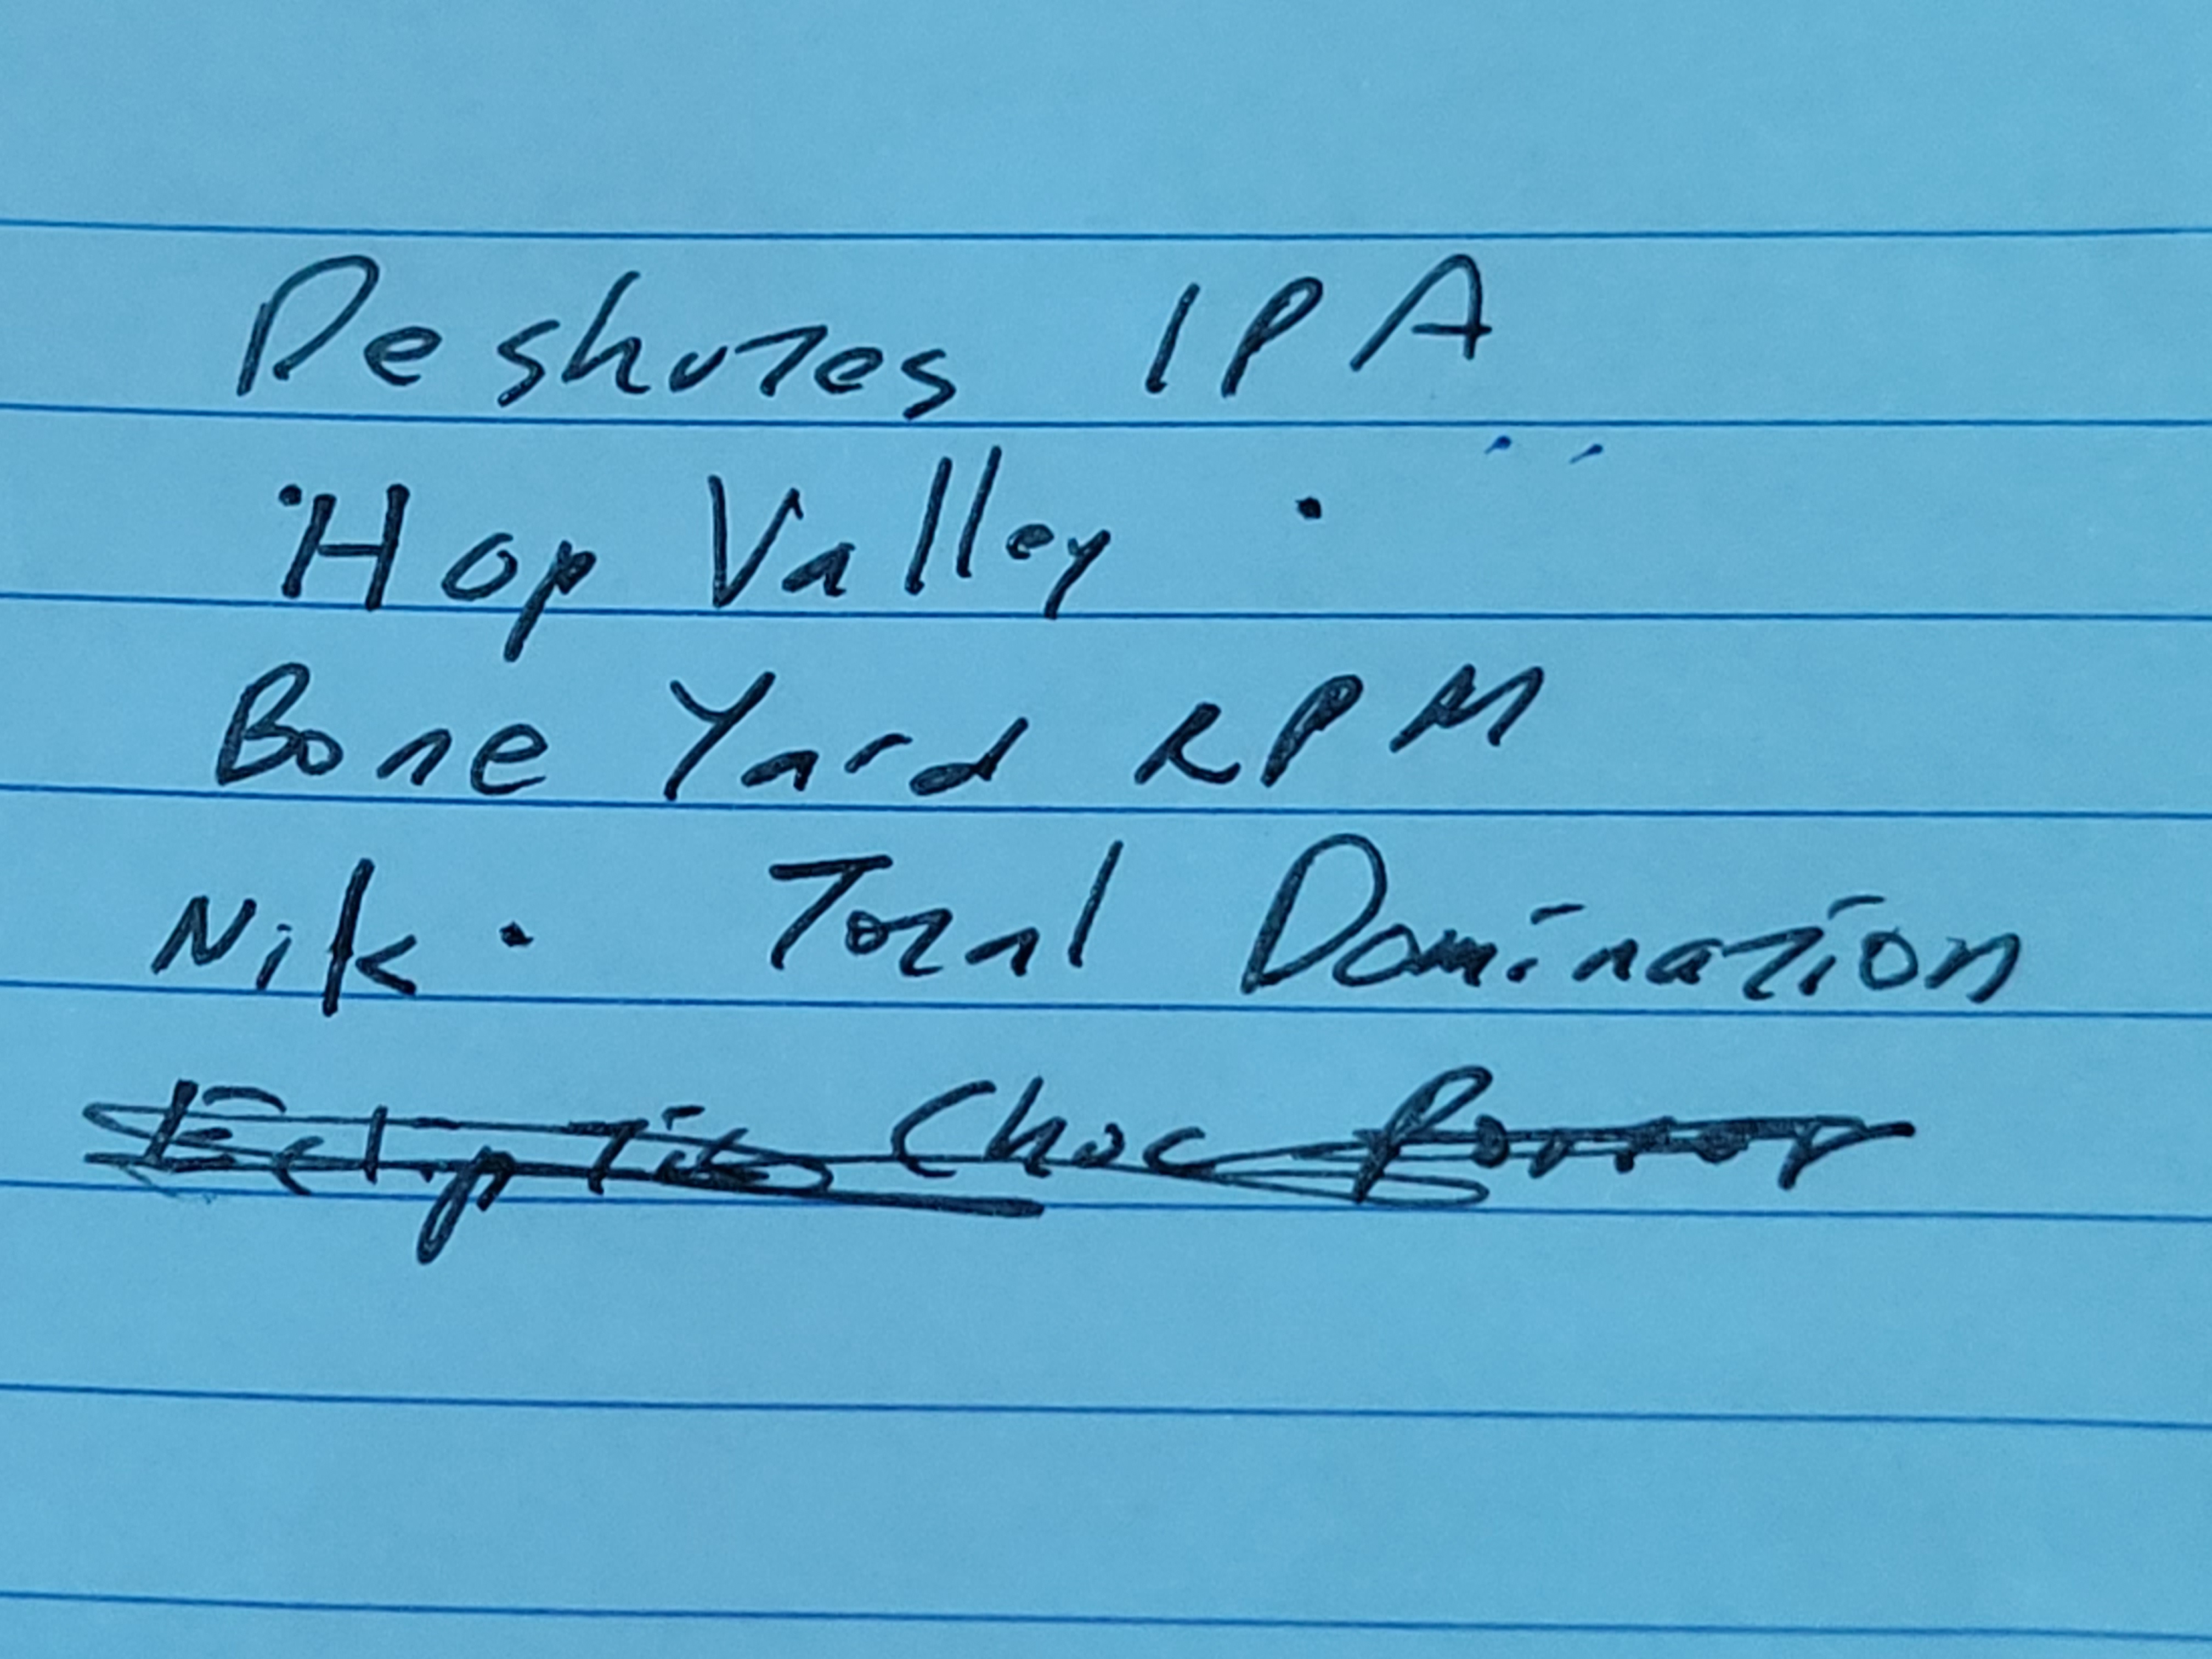 Deshutes IPA
Hop Valley
Bone Yard RPM
Nik. Total Domination
Ecliptic Choc Porter